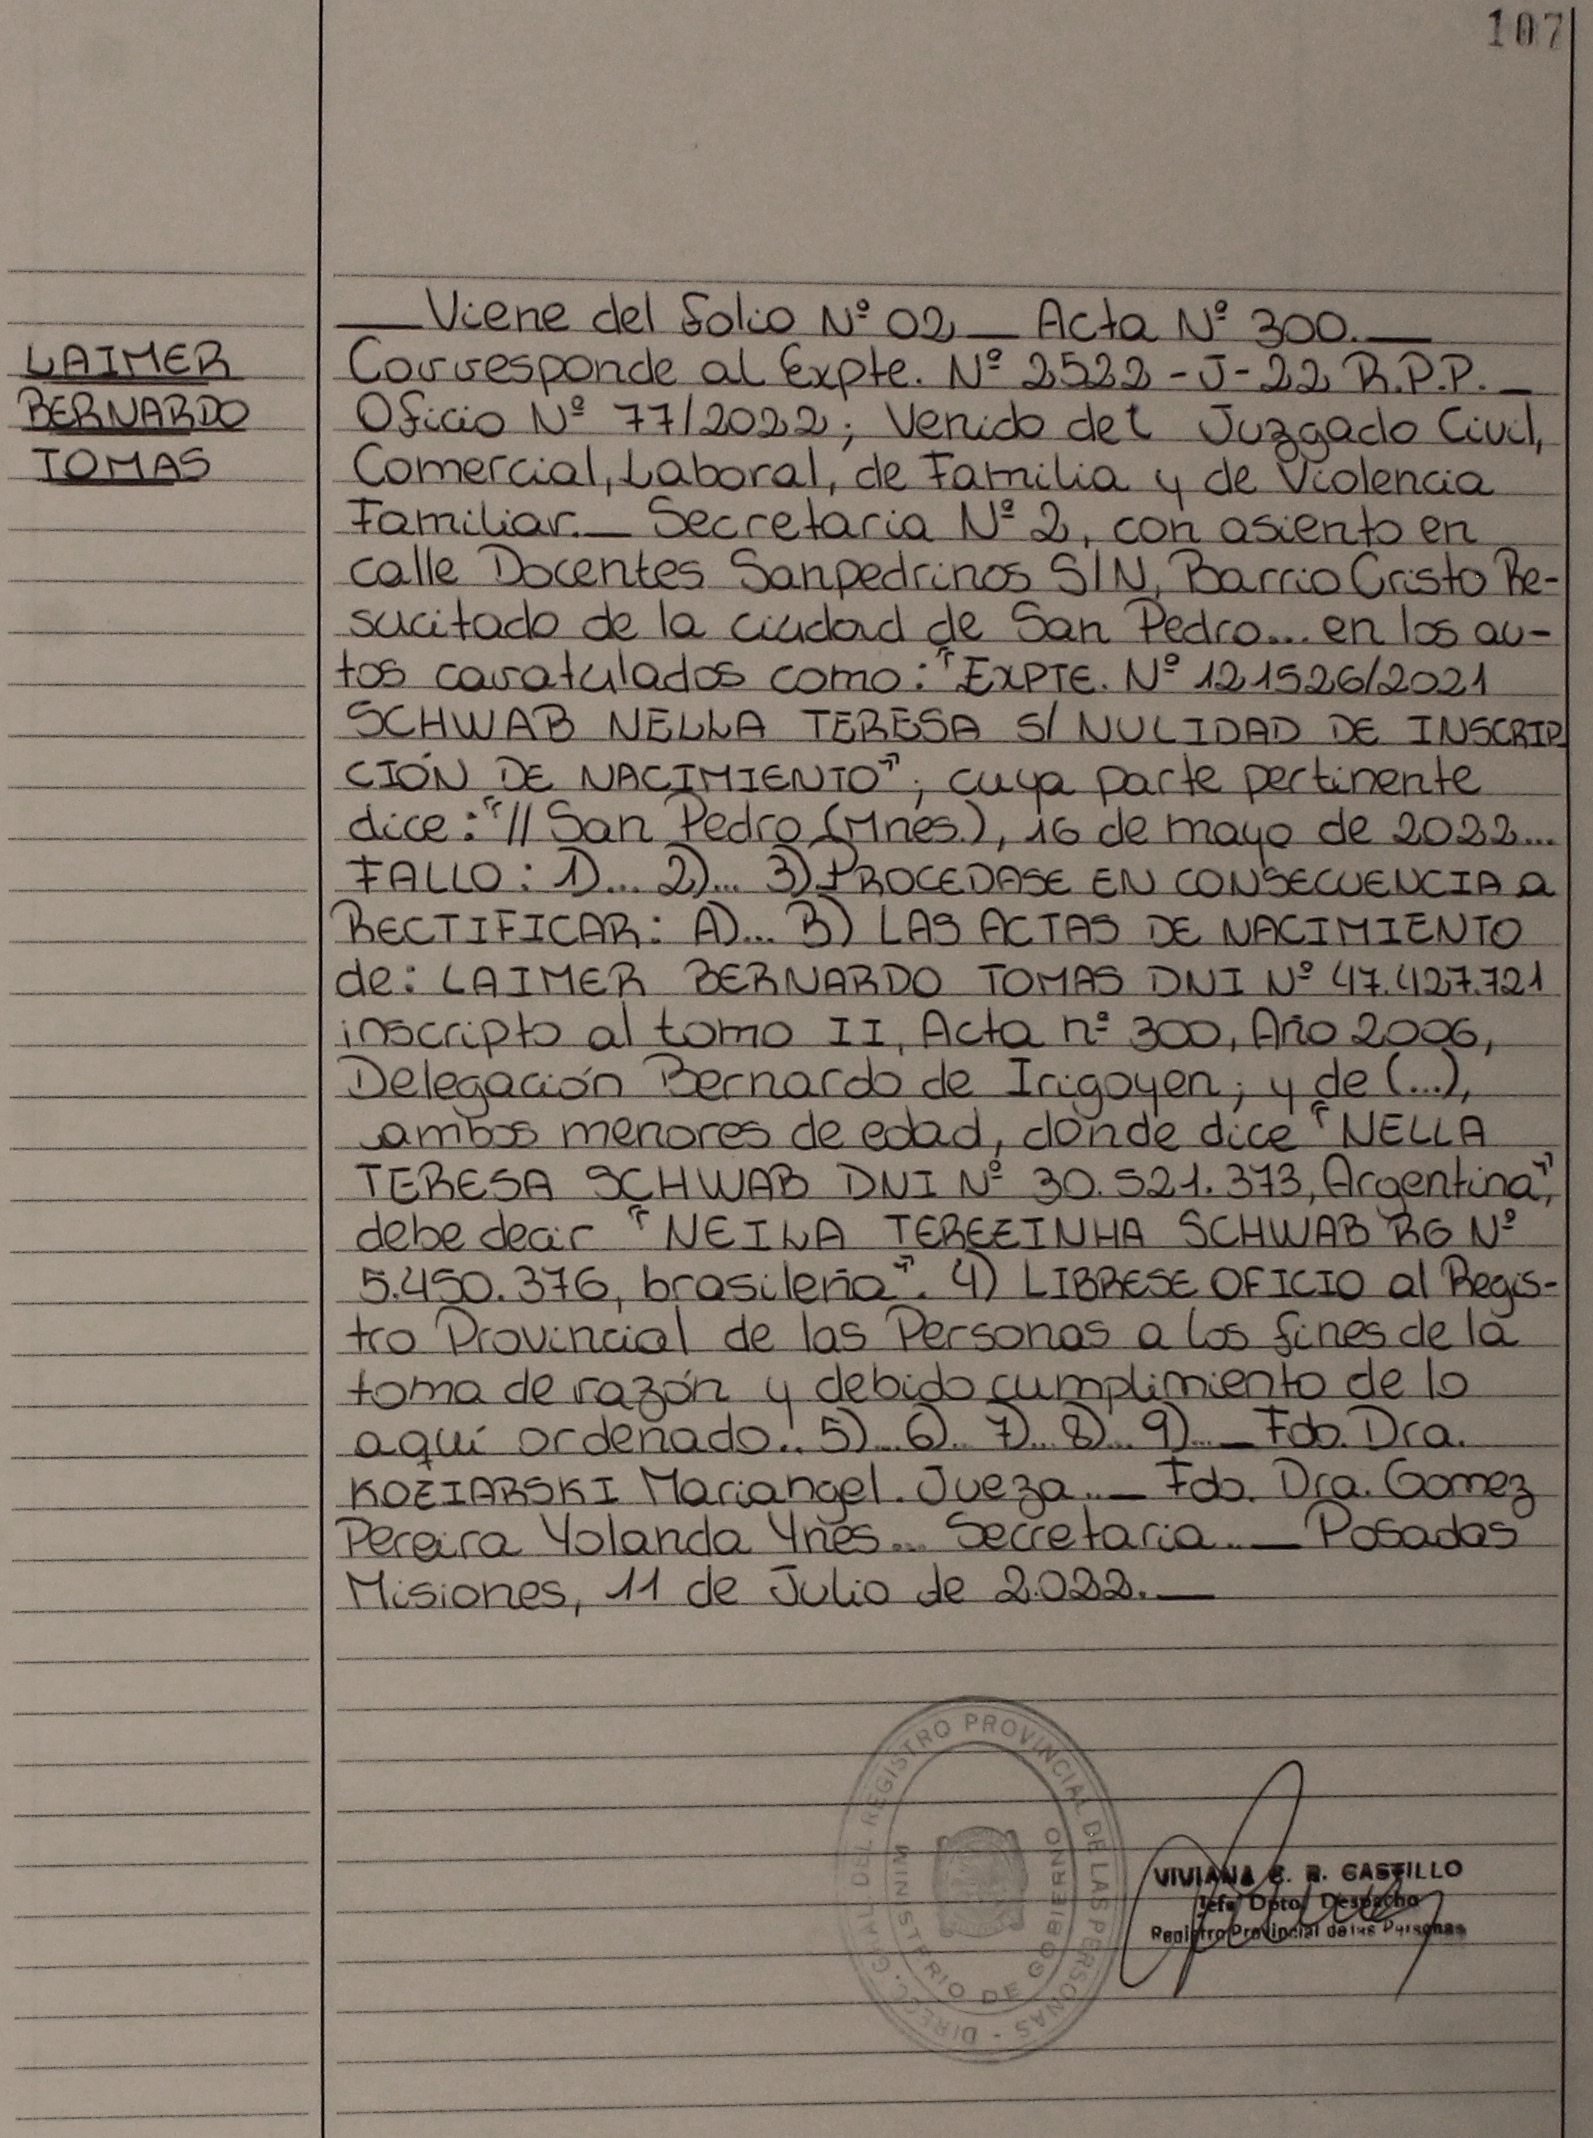 107
LAIMER
BERNARDO
TOMAS
Viene del folio Nº 02 — Acta Nº 300.—
Corresponde al Expte. Nº 2522 - J - 22 R.P.P. —
Oficio Nº 77/2022; Venido del Juzgado Civil,
Comercial, Laboral, de Familia y de Violencia
Familiar. — Secretaria Nº 2, con asiento en
calle Docentes Sanpedrinos S/N, Barrio Cristo Re-
sucitado de la ciudad de San Pedro... en los au-
tos caratulados como: "EXPTE. Nº 121526/2021
SCHWAB NELLA TERESA S/ NULIDAD DE INSCRIP
CIÓN DE NACIMIENTO"; cuya parte pertinente
dice: "// San Pedro (Mnes.), 16 de mayo de 2022...
FALLO: 1)... 2)... 3) PROCEDASE EN CONSECUENCIA a
RECTIFICAR: A)... B) LAS ACTAS DE NACIMIENTO
de: LAIMER BERNARDO TOMAS DNI Nº 47.427.721
inscripto al tomo II, Acta nº 300, Año 2006,
Delegación Bernardo de Irigoyen; y de (...),
ambos menores de edad, dónde dice "NELLA
TERESA SCHWAB DNI Nº 30.521.373, Argentina",
debe decir "NEILA TEREZINHA SCHWAB RG Nº
5.450.376, brasileña". 4) LIBRESE OFICIO al Regis-
tro Provincial de las Personas a los fines de la
toma de razón y debido cumplimiento de lo
aquí ordenado.. 5)... 6)... 7)... 8)... 9)... — Fdo. Dra.
KOZIARSKI Mariangel. Jueza... — Fdo. Dra. Gomez
Pereira Yolanda Ynes... Secretaria... — Posadas
Misiones, 11 de Julio de 2.022. —
DIRECC. GRAL. DEL REGISTRO PROVINCIAL DE LAS PERSONAS -
MINISTERIO DE GOBIERNO
VIVIANA E. R. CASTILLO
Jefa Dpto. Despacho
Registro Provincial de las Personas